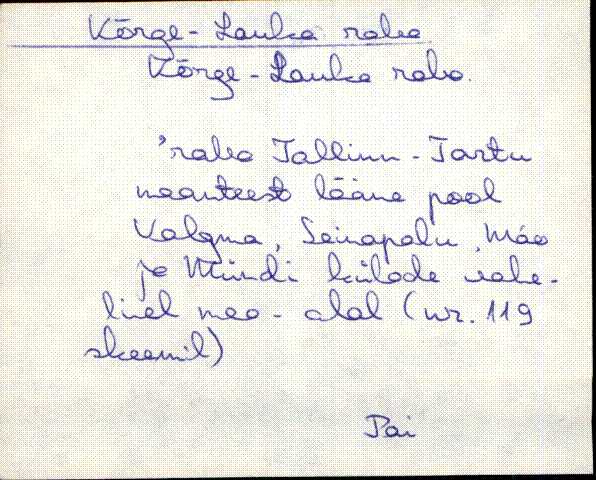 Kõrge-Lauka raba
Kõrge-Lauka raba.
'raba Tallinn-Tartu
maanteest lääne pool
Valgma, Seinapalu, Mäo
ja Mündi külade vahe-
lisel maa-alal (nr. 119
skeemil)
Pai